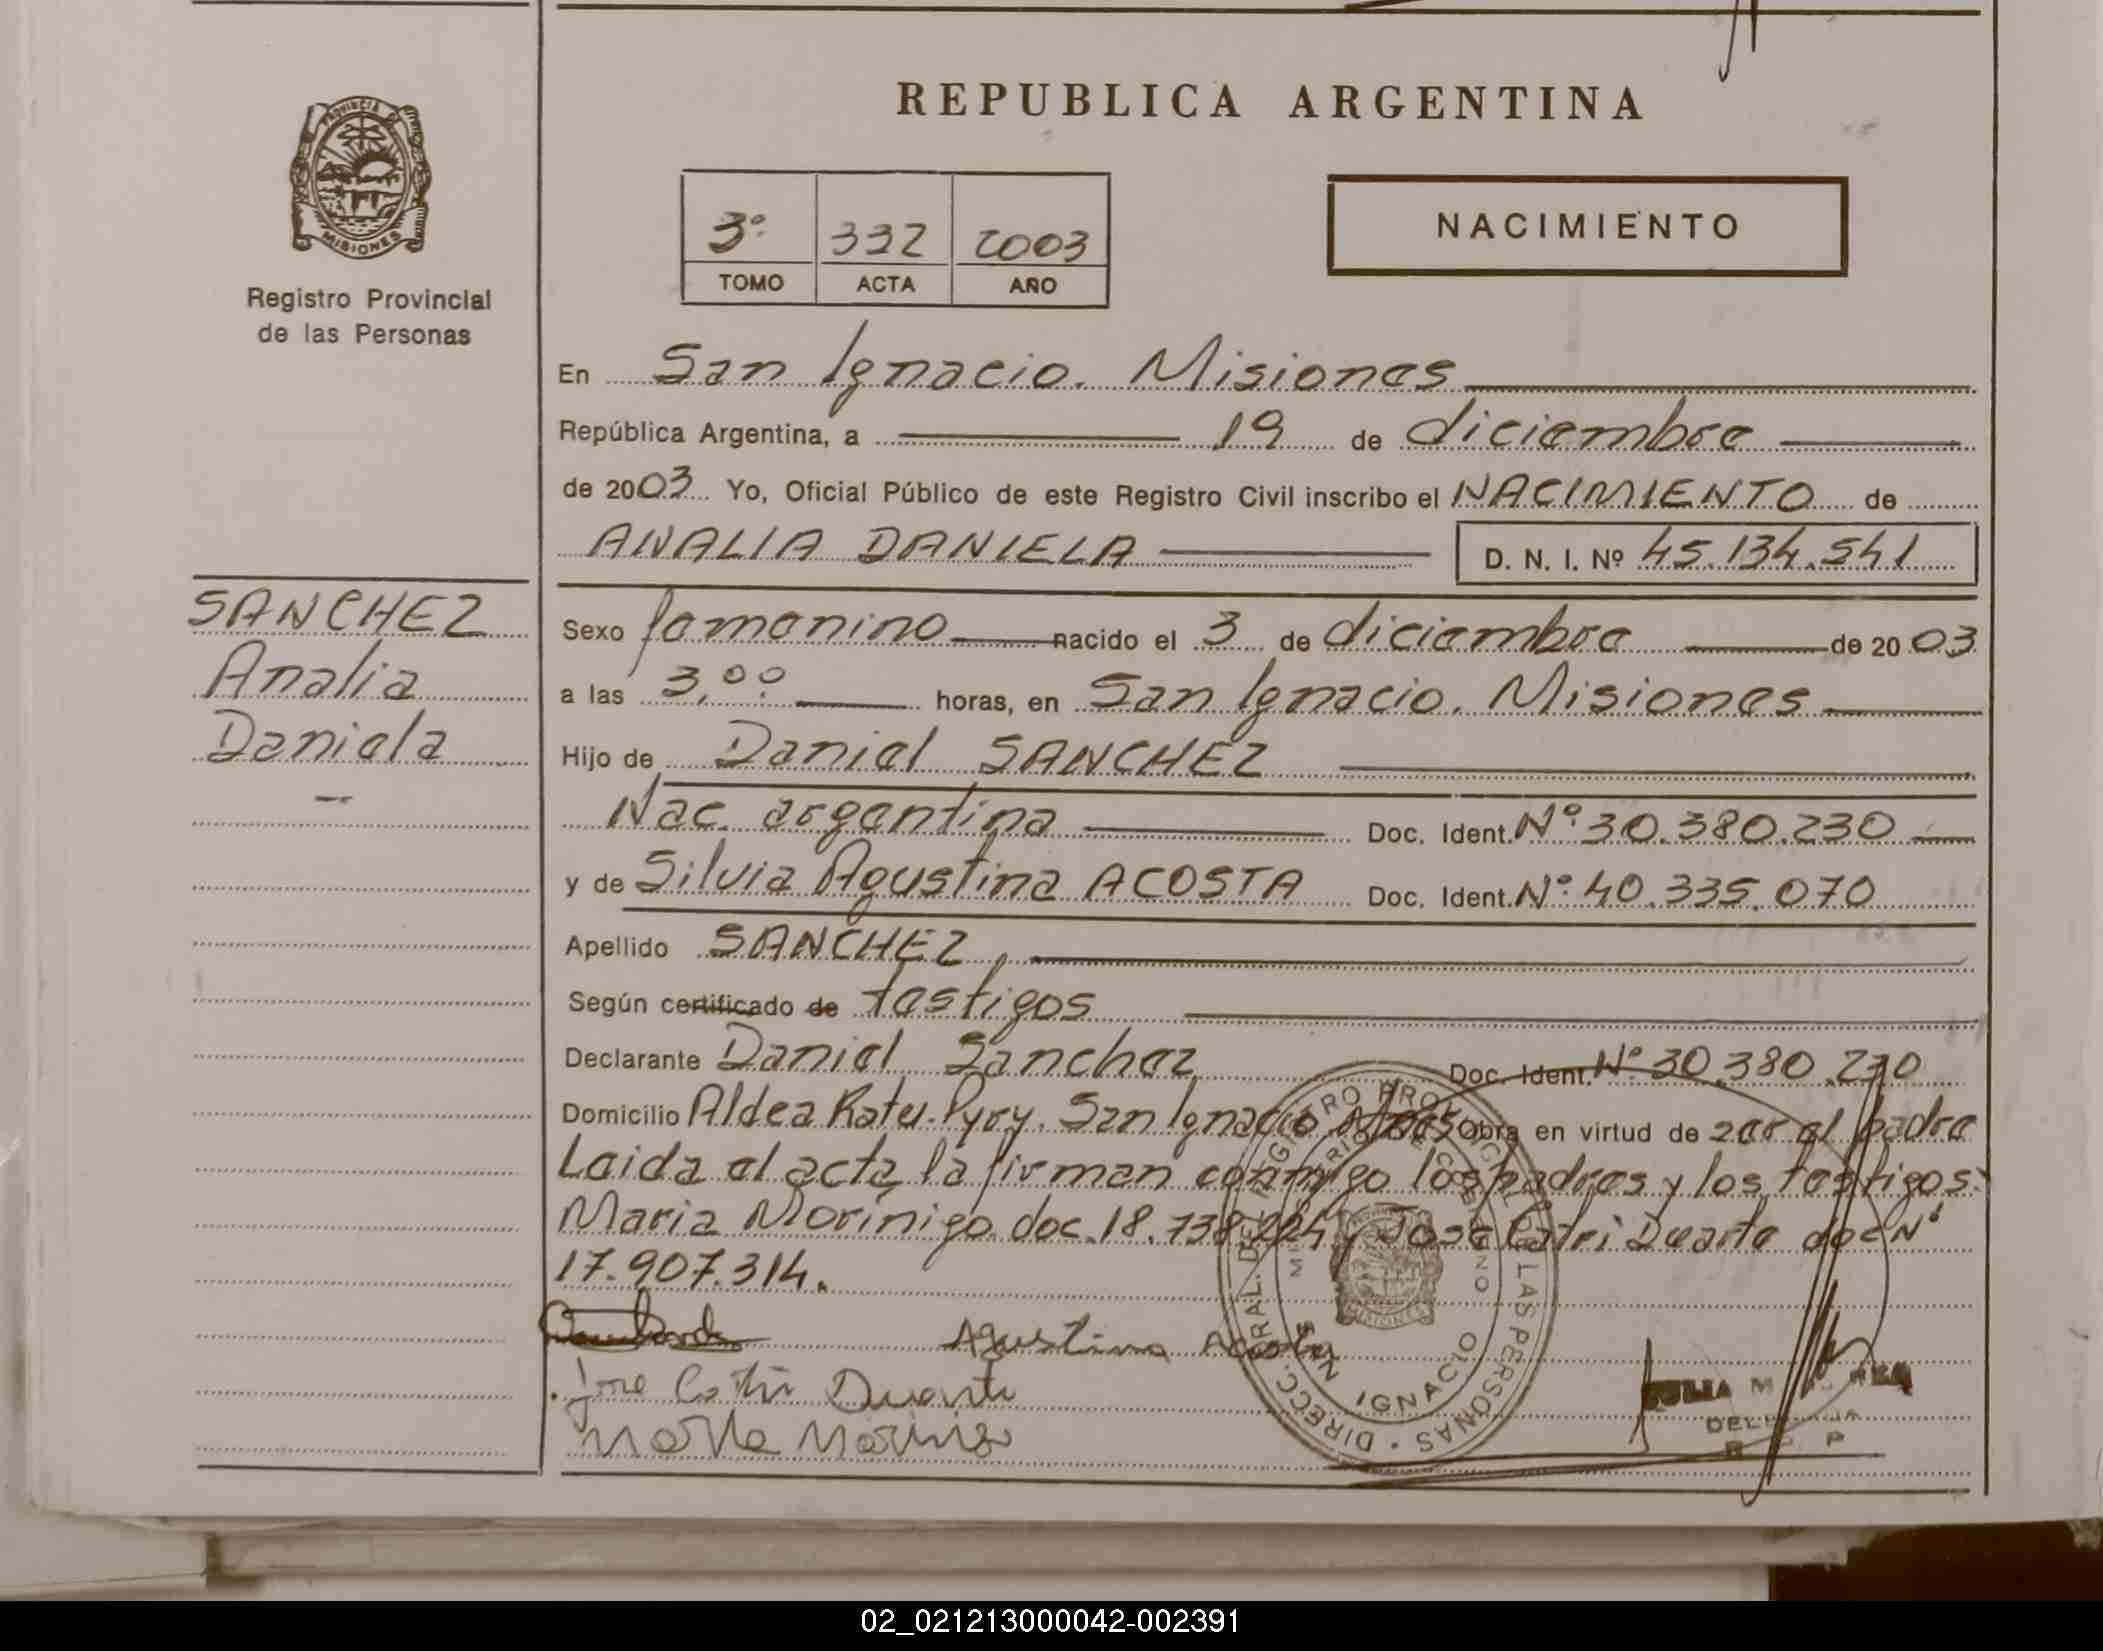 REPUBLICA ARGENTINA
PROVINCIA DE
MISIONES
Registro Provincial
de las Personas
3º 332 2003
TOMO ACTA AÑO
NACIMIENTO
En San Ignacio. Misiones
República Argentina, a 19 de diciembre
de 2003 Yo, Oficial Público de este Registro Civil inscribo el NACIMIENTO de
ANALIA DANIELA D. N. I. Nº 45.134.541
SANCHEZ
Analia
Daniela
Sexo femenino nacido el 3 de diciembre de 2003
a las 3,00 horas, en San Ignacio. Misiones
Hijo de Daniel SANCHEZ
Nac. argentina Doc. Ident. Nº 30.380.230
y de Silvia Agustina ACOSTA Doc. Ident. Nº 40.335.070
Apellido SANCHEZ
Según certificado de testigos
Declarante Daniel Sanchez Doc. Ident. Nº 30.380.230
Domicilio Aldea Katu-Pyry. San Ignacio Mnes Obra en virtud de ser el padre
Leida el acta la firman conmigo los padres y los testigos:
Maria Morínigo doc. 18.738.224 y Jose Catri Duarte doc Nº
17.907.314.
Agustina Acosta
Jose Catri Duarte
Morinigo
DIRECC. GRAL. DEL REGISTRO PROVINCIAL DE LAS PERSONAS
SAN IGNACIO
02_021213000042-002391